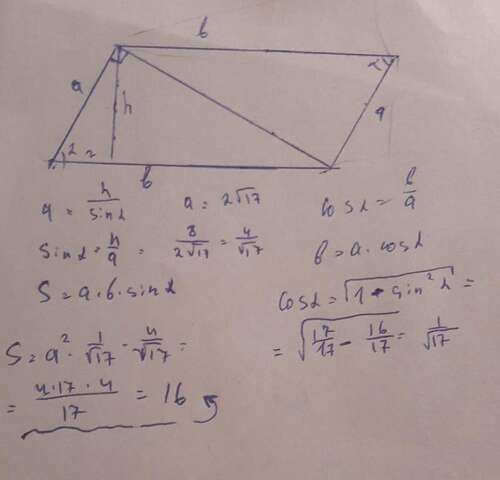 b
a
h
α
a
α
2
b
a = h/sinα
a = 2√17
cosα = b/a
sinα = h/a = 8/2√17 = 4/√17
b = a · cosα
S = a · b · sinα
cosα = √1 - sin²α =
= √17/17 - 16/17 = 1/√17
S = a² · 1/√17 · 4/√17 =
= 4·17·4/17 = 16